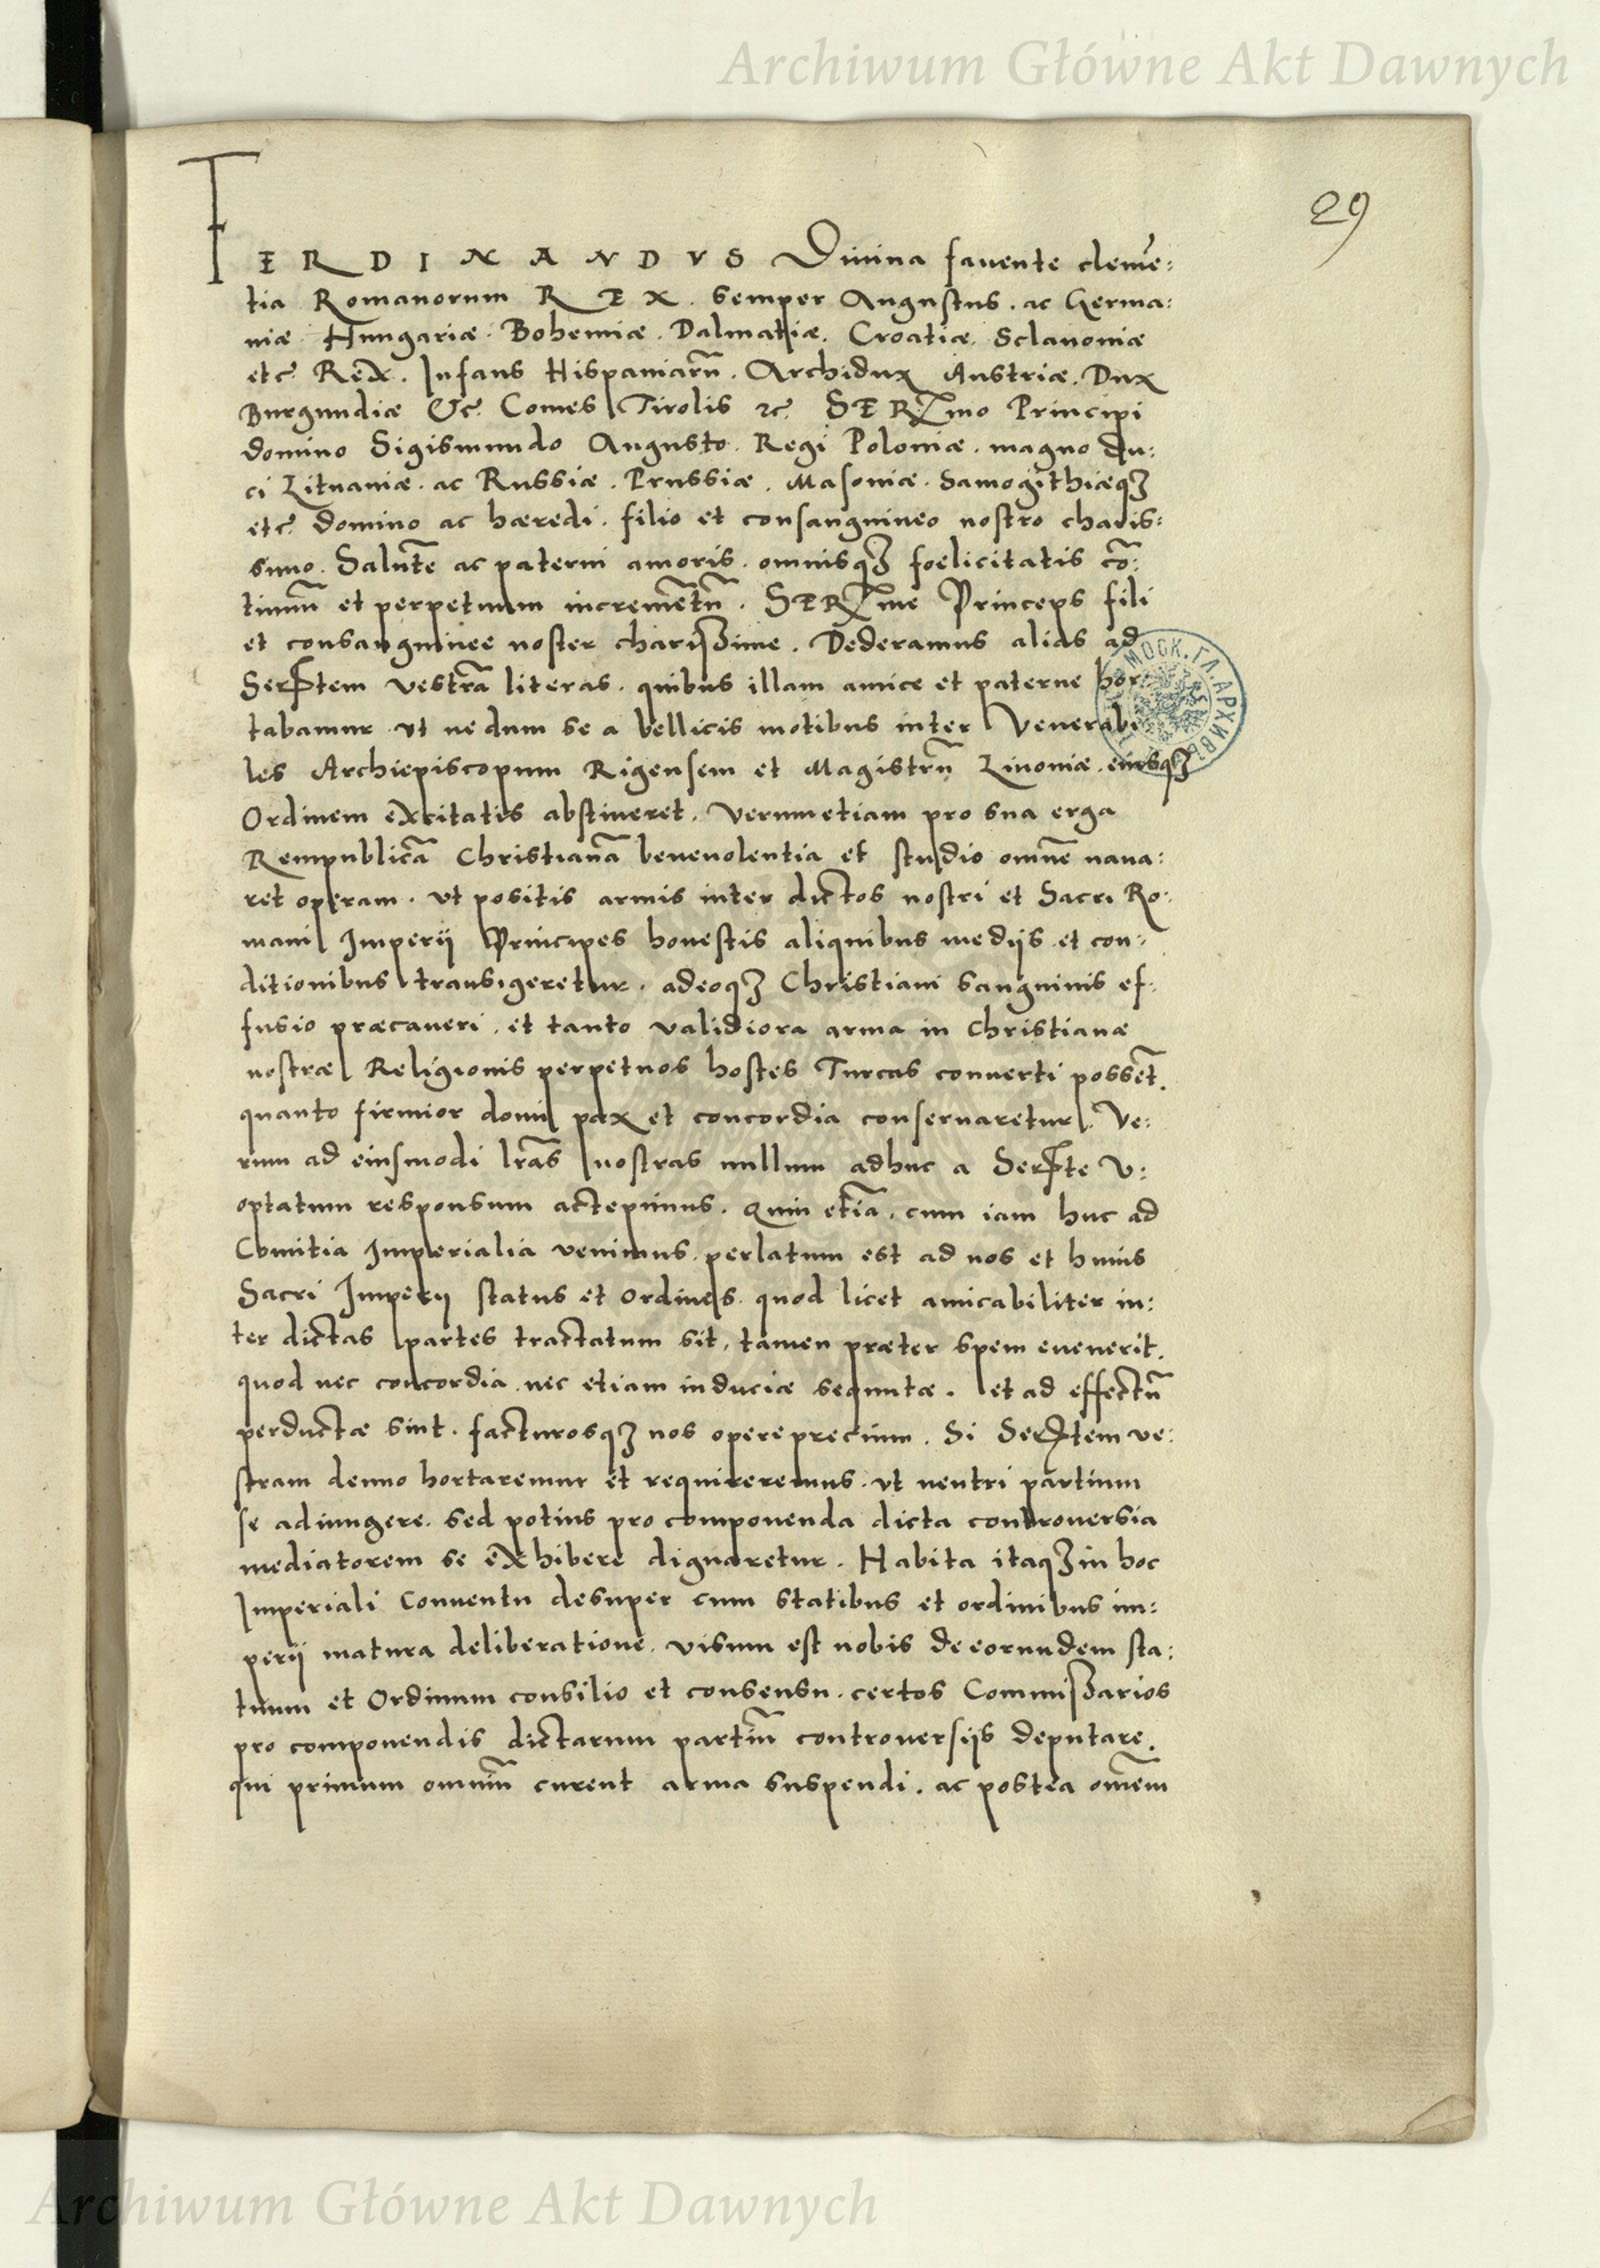 Archiwum Główne Akt Dawnych
29
FERDINANDVS Diuina fauente clemē:
tia Romanorum REX. semper Augustus. ac Germa:
niæ. Hungariæ. Bohemiæ. Dalmatiæ. Croatiæ. Sclauoniæ
etc̃ Rex. Infans Hispaniarũ. Archidux Austriæ. Dux
Burgundiæ &c̃. Comes Tirolis &c̃. SERmo Principi
domino Sigismundo Augusto. Regi Poloniæ. magno du:
ci Lituaniæ. ac Russiæ. Prussiæ. Masoniæ. Samogithiæq3
etc̃ domino ac hæredi. filio et consanguineo nostro charis:
simo. Salutẽ ac paterni amoris. omnisq3 foelicitatis cõ:
tinuũ et perpetuum incremẽtũ. SERme Princeps fili
et consanguinee noster charißime. Dederamus alias ad
Serᵗtem vestrã literas. quibus illam amice et paterne hor:
tabamur. vt nedum se a bellicis motibus inter Venerabi
les Archiepiscopum Rigensem et Magistrũ Liuoniæ. eiusq3
Ordinem excitatis abstineret. Verumetiam pro sua erga
Rempublicã Christianã beneuolentia et studio omnẽ naua:
ret operam. vt positis armis inter dictos nostri et Sacri Ro:
mani Imperij Principes honestis aliquibus medijs. et con:
ditionibus transigeretur. adeoq3 Christiani sanguinis ef:
fusio præcaueri. et tanto validiora arma in Christianæ
nostræ Religionis perpetuos hostes Turcas conuerti possẽt.
quanto firmior domi pax et concordia conseruaretur. Ve:
rum ad eiusmodi lrãs nostras nullum adhuc a Serᵗte V:
optatum responsum accepimus. Quin etiã. cum iam huc ad
Comitia Imperialia venimus. perlatum est ad nos et huius
Sacri Imperij status et Ordines. quod licet amicabiliter in:
ter dictas partes tractatum sit, tamen præter spem euenerit.
quod nec concordia nec etiam induciæ sequutæ. et ad effectũ
perductæ sint. facturosq3 nos opereprecium. Si Serᵗtem ve:
stram denuo hortaremur et requireremus. vt neutri partium
se adiungere. sed potius pro componenda dicta controuersia
mediatorem se exhibere dignaretur. Habita itaq3 in hoc
Imperiali Conuentu desuper cum statibus et ordinibus im:
perij matura deliberatione. visum est nobis de eorundem sta:
tuum et Ordinum consilio et consensu. certos Commißarios
pro componendis dictarum partiũ controuersijs deputare.
qui primum omniũ curent arma suspendi. ac postea omẽm
МОСК. ГЛ. АРХИВЪ
Archiwum Główne Akt Dawnych